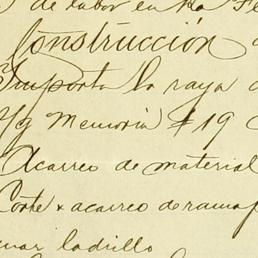 de labor en la Fe
Construcción
Importa la raya d
Memoria #19 C
Acarreo de material
Corte x acarreo de rama
ladrillo